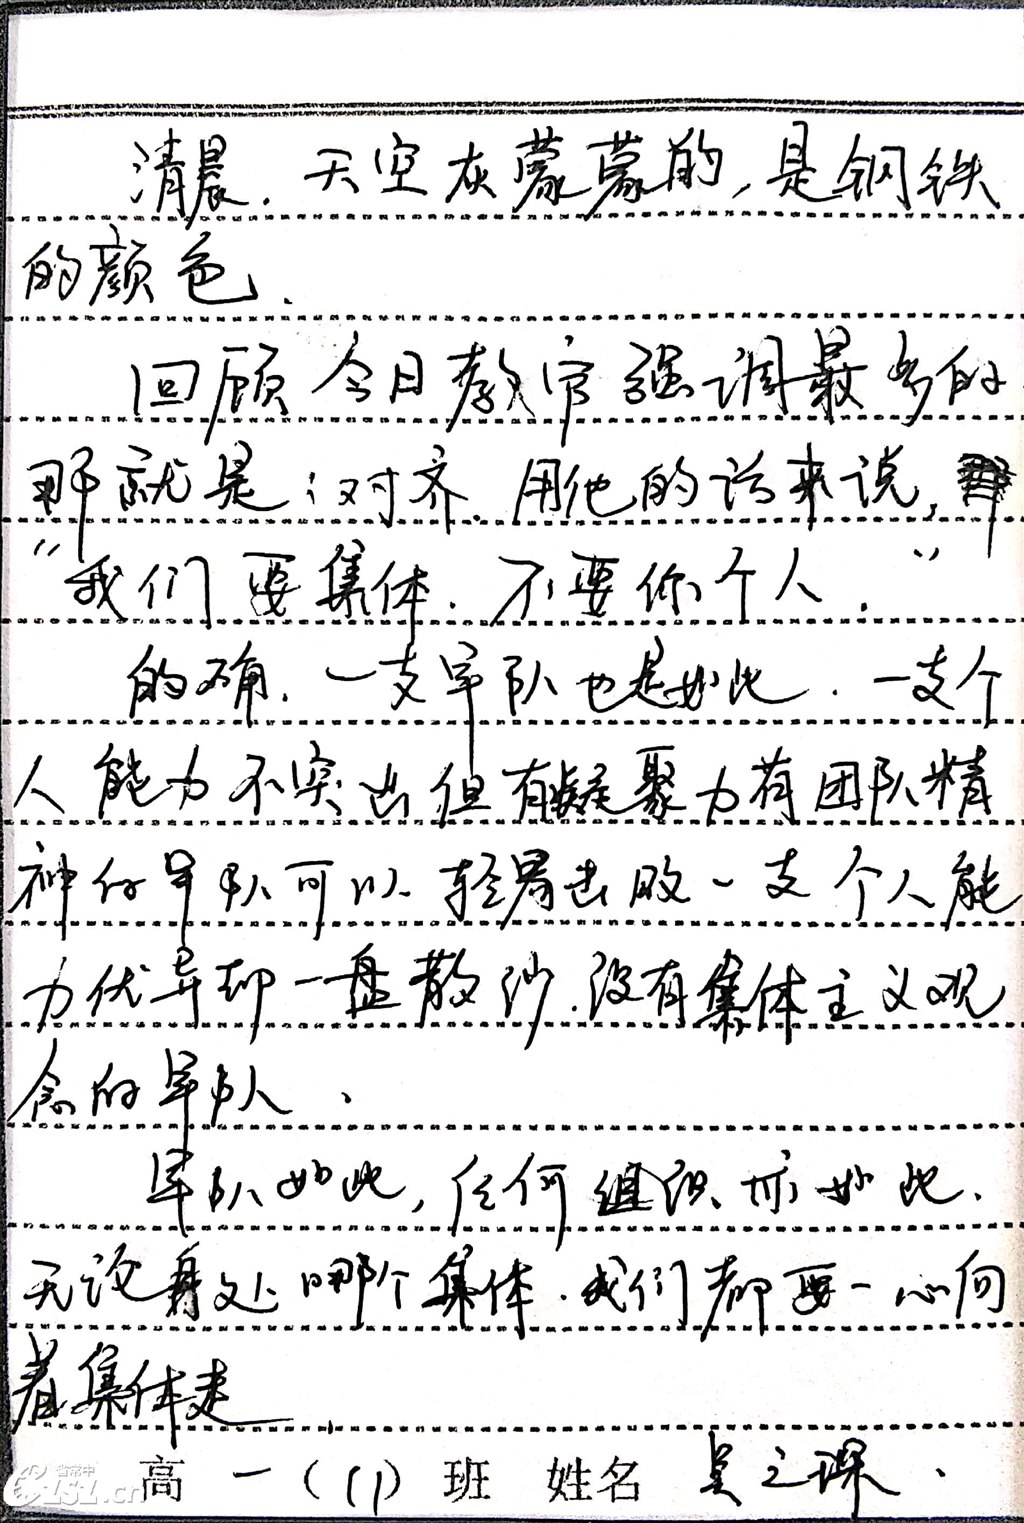 清晨.天空灰蒙蒙的,是钢铁
的颜色.
回顾今日教官强调最多的
那就是:对齐.用他的话来说,
"我们要集体.不要你个人."
的确.一支军队也是如此.一支个
人能力不突出但有凝聚力有团队精
神的军队可以轻易击败一支个人能
力优异却一盘散沙.没有集体主义观
念的军队.
军队如此,任何组织亦如此.
无论身处哪个集体.我们都要一心向
着集体走
高一(11)班 姓名 吴之琛.
省常中